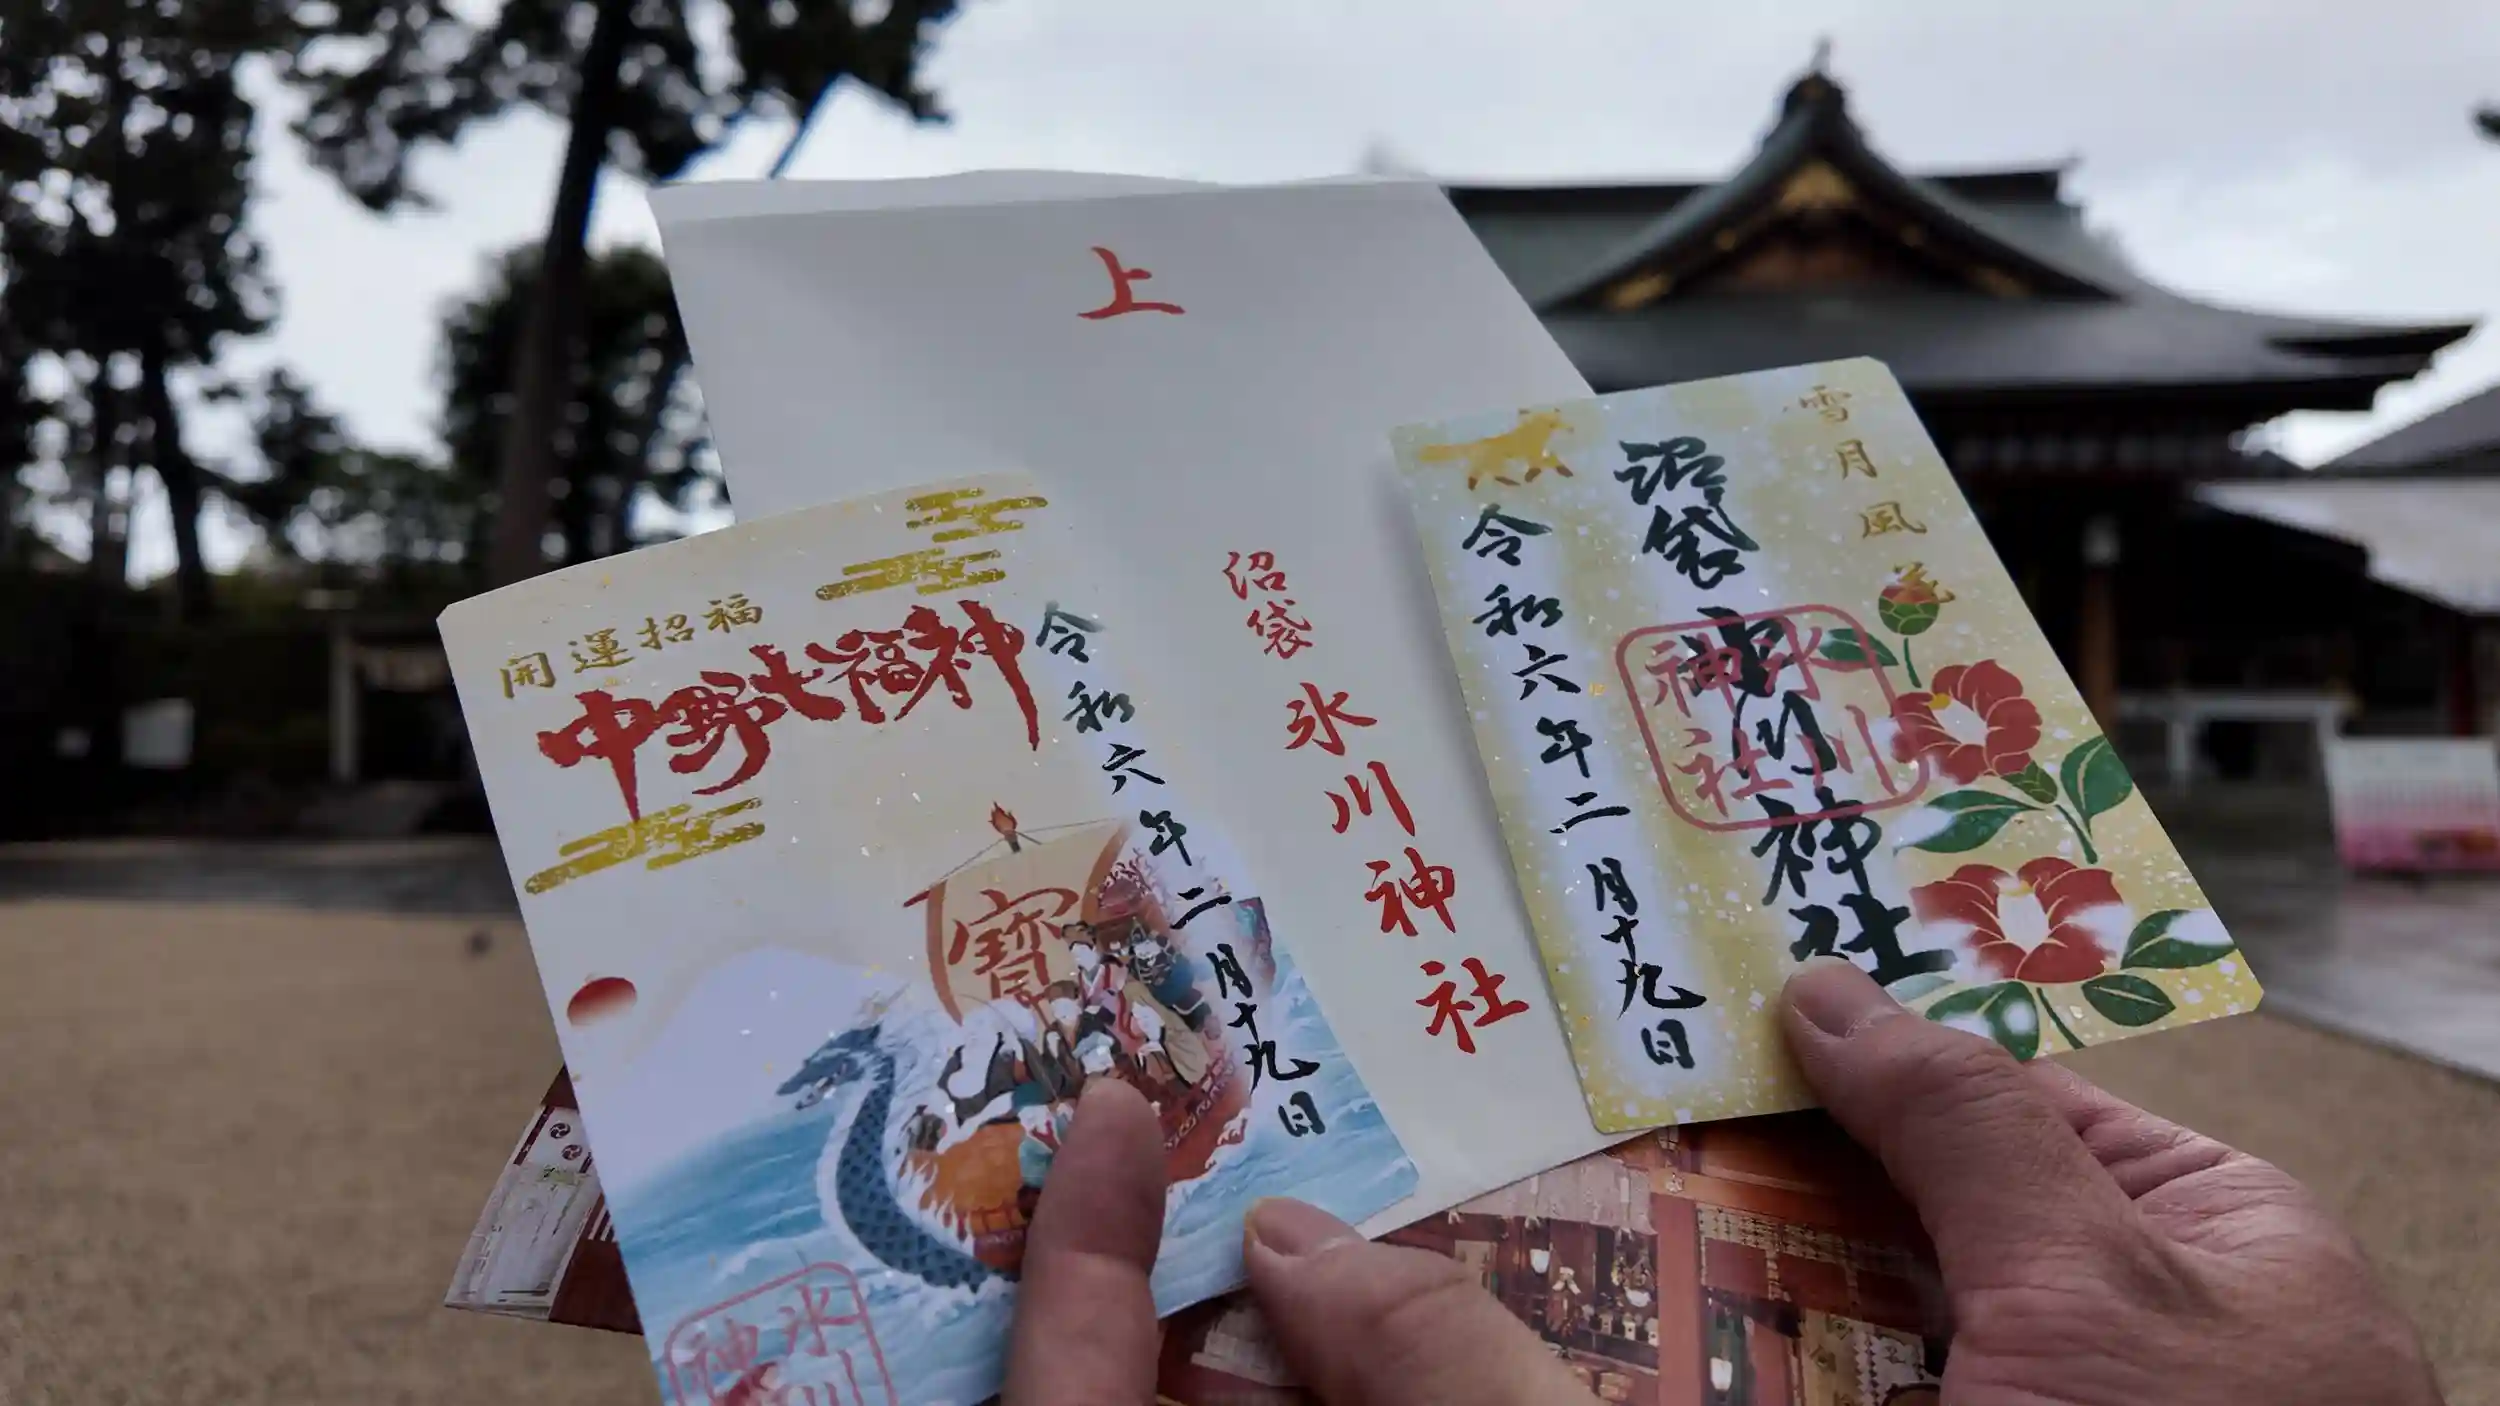 上
沼袋 氷川神社
開運招福
中野七福神
令和六年二月十九日
寶
氷川
神
雪月風花
沼袋 氷川神社
氷川
神社
令和六年二月十九日